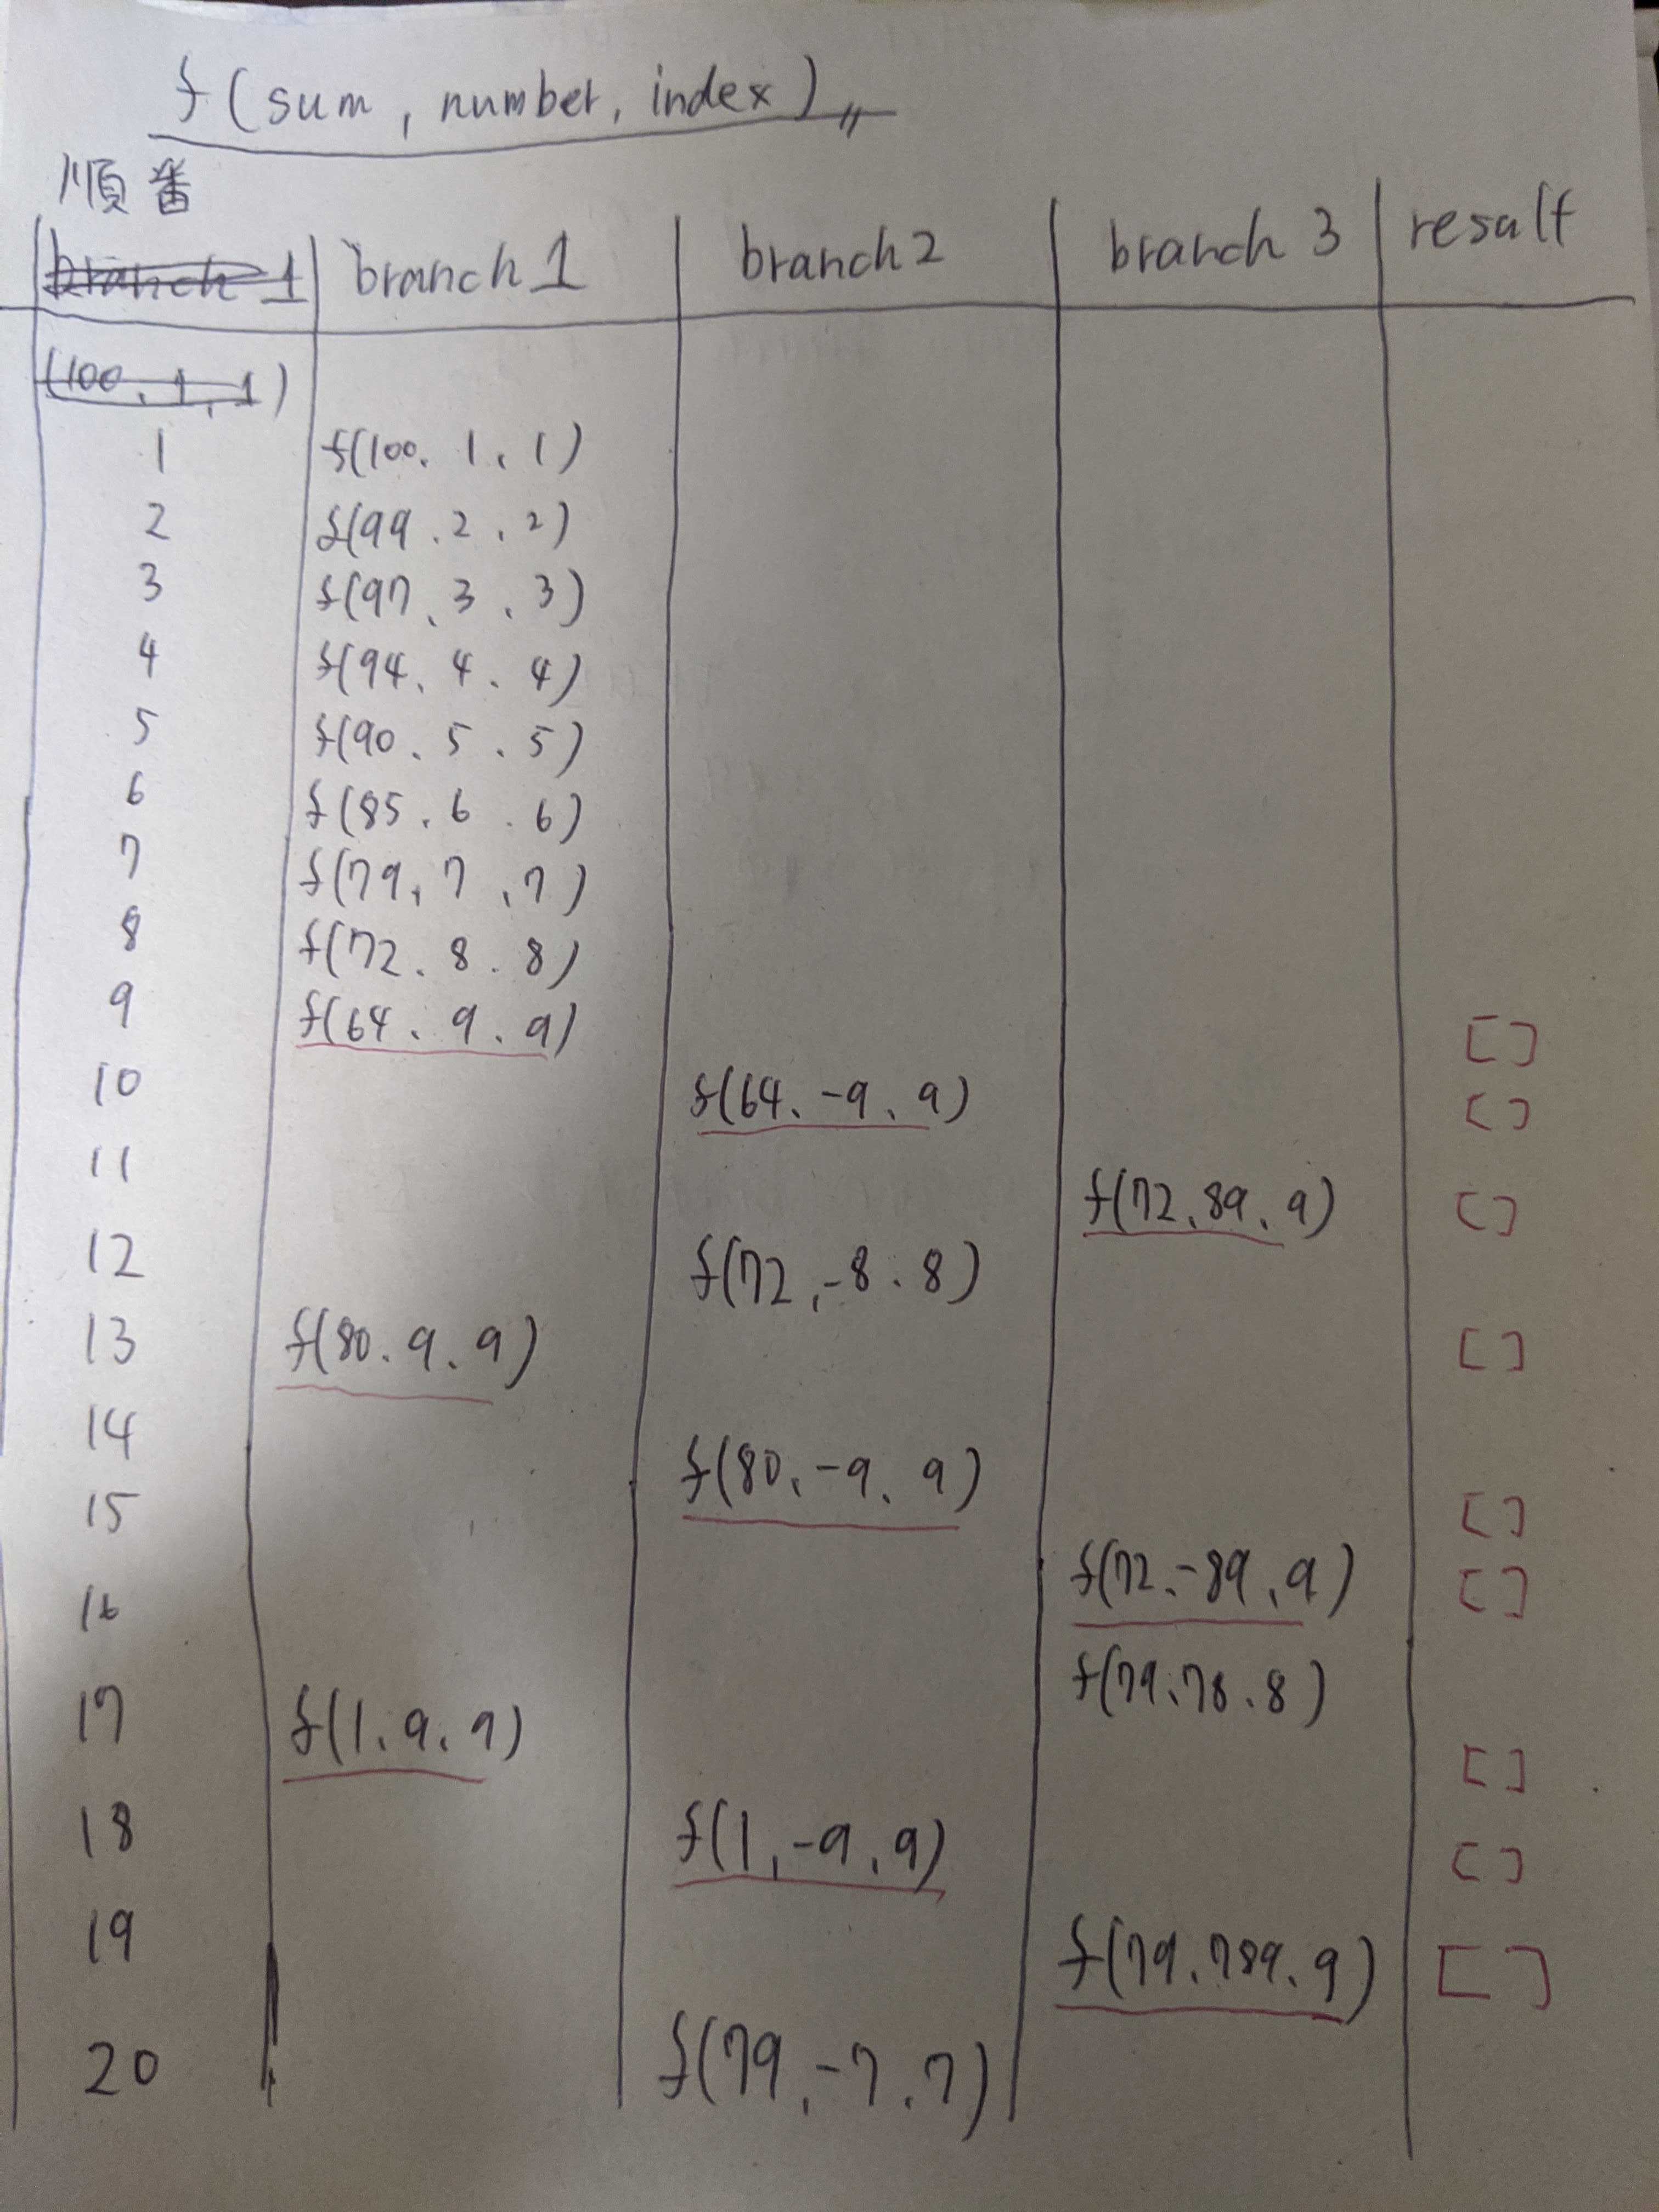 f(sum, number, index)
順番
branch 1 branch 1 branch 2 branch 3 result
(100, 1, 1)
1 f(100, 1, 1)
2 f(99, 2, 2)
3 f(97, 3, 3)
4 f(94, 4, 4)
5 f(90, 5, 5)
6 f(85, 6, 6)
7 f(79, 7, 7)
8 f(72, 8, 8)
9 f(64, 9, 9) []
10 f(64, -9, 9) []
11 f(72, 89, 9) []
12 f(72, -8, 8)
13 f(80, 9, 9) []
14 f(80, -9, 9)
15 []
f(72, -89, 9) []
16 f(79, 78, 8)
17 f(1, 9, 9) []
18 f(1, -9, 9) []
19 f(79, 789, 9) []
20 f(79, -7, 7)